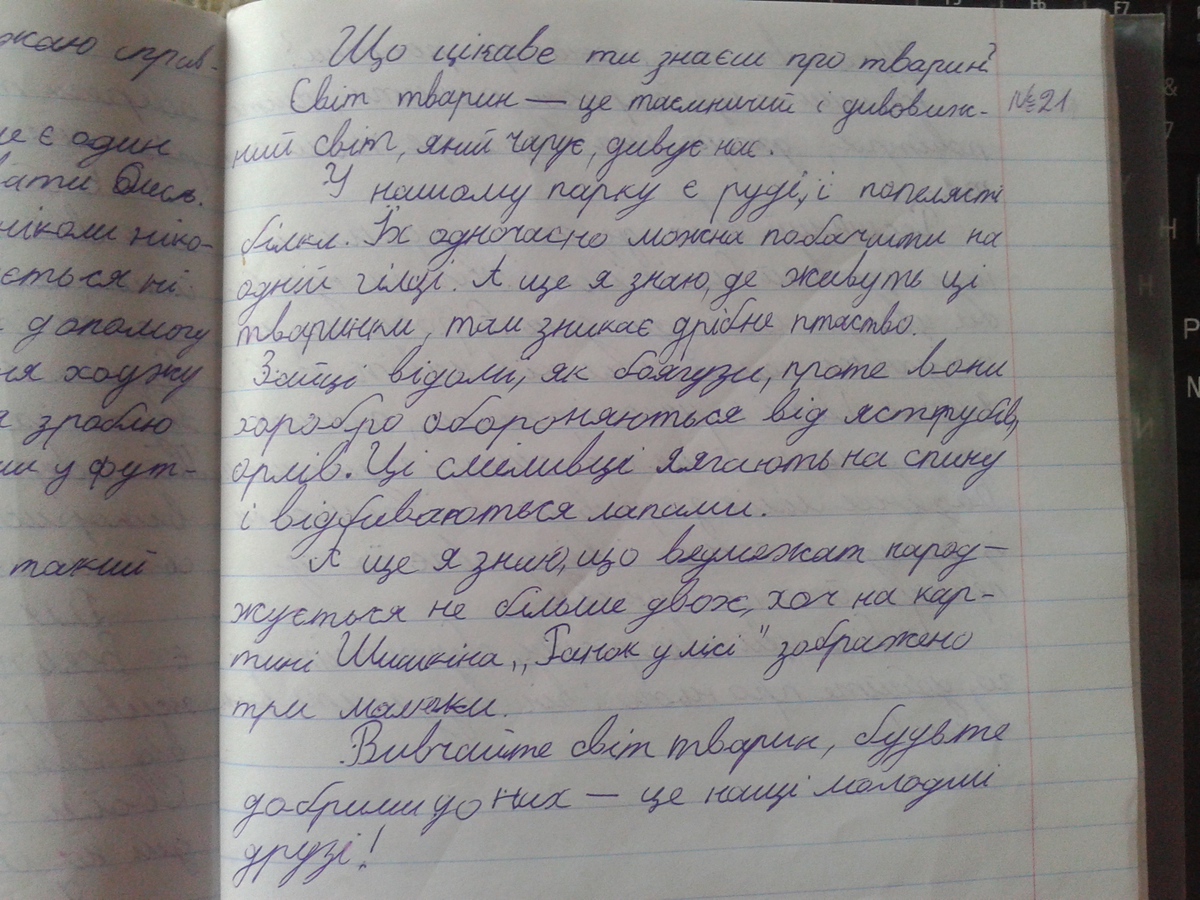 жаю справ-
є один
ніколи ніко-
ється ні
допомогу
ня ходжу
я зроблю
ми у фут-
такий
Що цікаве ти знаєш про тварин?
Світ тварин — це таємничий і дивовиж-
№21
ний світ, який чарує, дивує нас.
У нашому парку є руді, і попелясті
білки. Їх одночасно можна побачити на
одній гілці. А ще я знаю, де живуть ці
тваринки, там зникає дрібне птаство.
Зайці відомі, як боягузи, проте вони
хоробро обороняються від яструбів,
орлів. Ці сміливці лягають на спину
і відбиваються лапами.
А ще я знаю, що ведмежат народ-
жується не більше двох, хоч на кар-
тині Шишкіна „Ранок у лісі" зображено
три малюки.
Вивчайте світ тварин, будьте
добрими до них — це наші молодші
друзі!